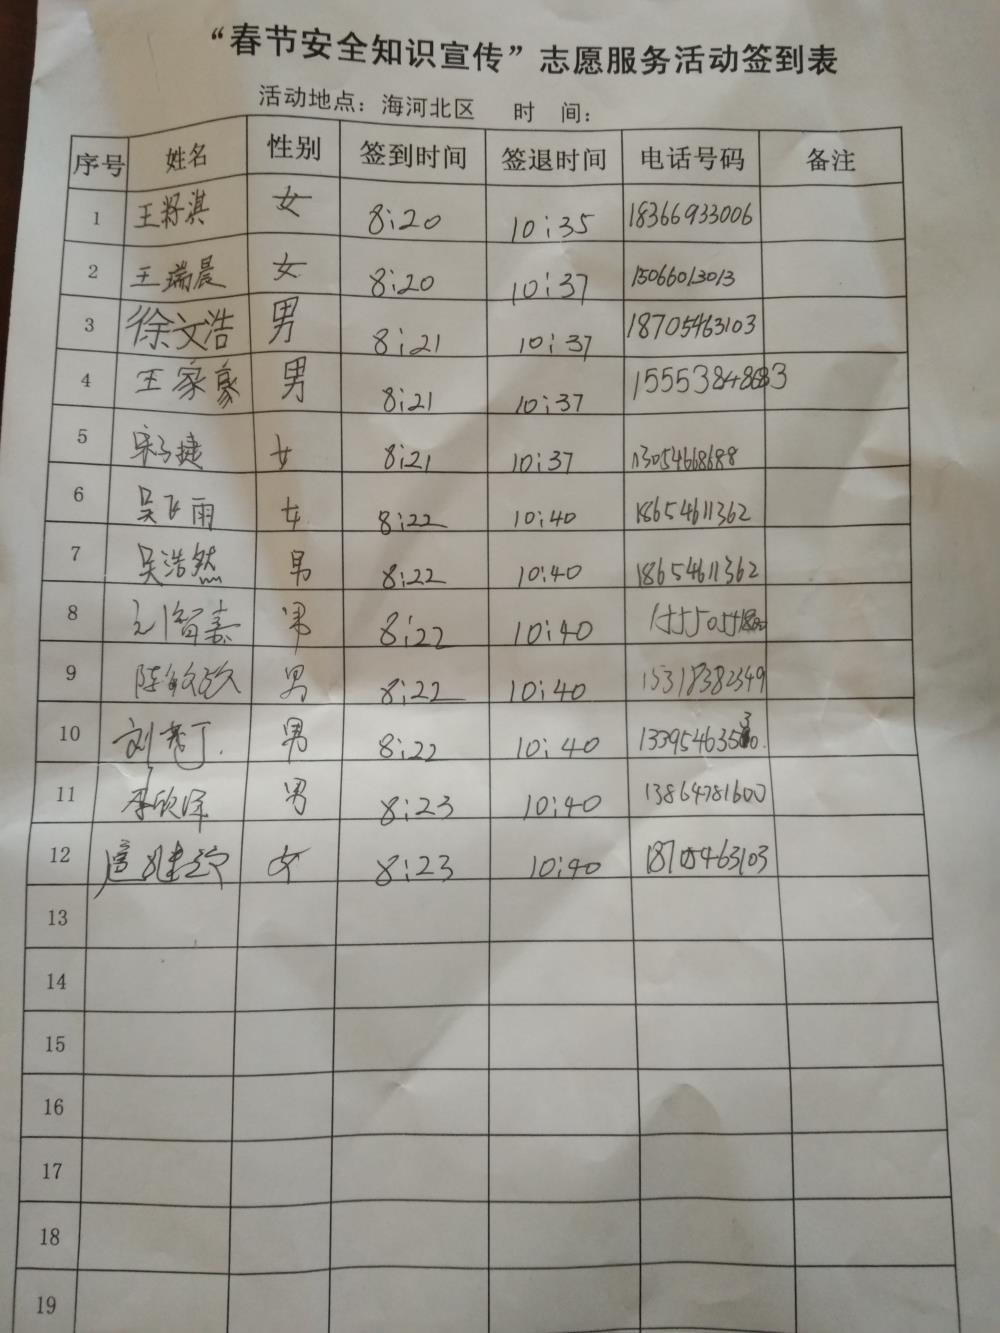 “春节安全知识宣传”志愿服务活动签到表
活动地点：海河北区 时 间：
序号 姓名 性别 签到时间 签退时间 电话号码 备注
1 王将淇 女 8:20 10:35 18366933006
2 王瑞晨 女 8:20 10:37 15066013013
3 徐文浩 男 8:21 10:37 18705463103
4 王家豪 男 8:21 10:37
5 宋子捷 女 8:21 10:37 13054668688
6 吴飞雨 女 8:22 10:40 18654611362
7 吴浩然 男 8:22 10:40 18654611362
8 男 8:22 10:40
9 陈 男 8:22 10:40 15318382349
10 刘 男 8:22 10:40
11 李欣泽 男 8:23 10:40 13864781600
12 女 8:23 10:40 18705463103
13
14
15
16
17
18
19